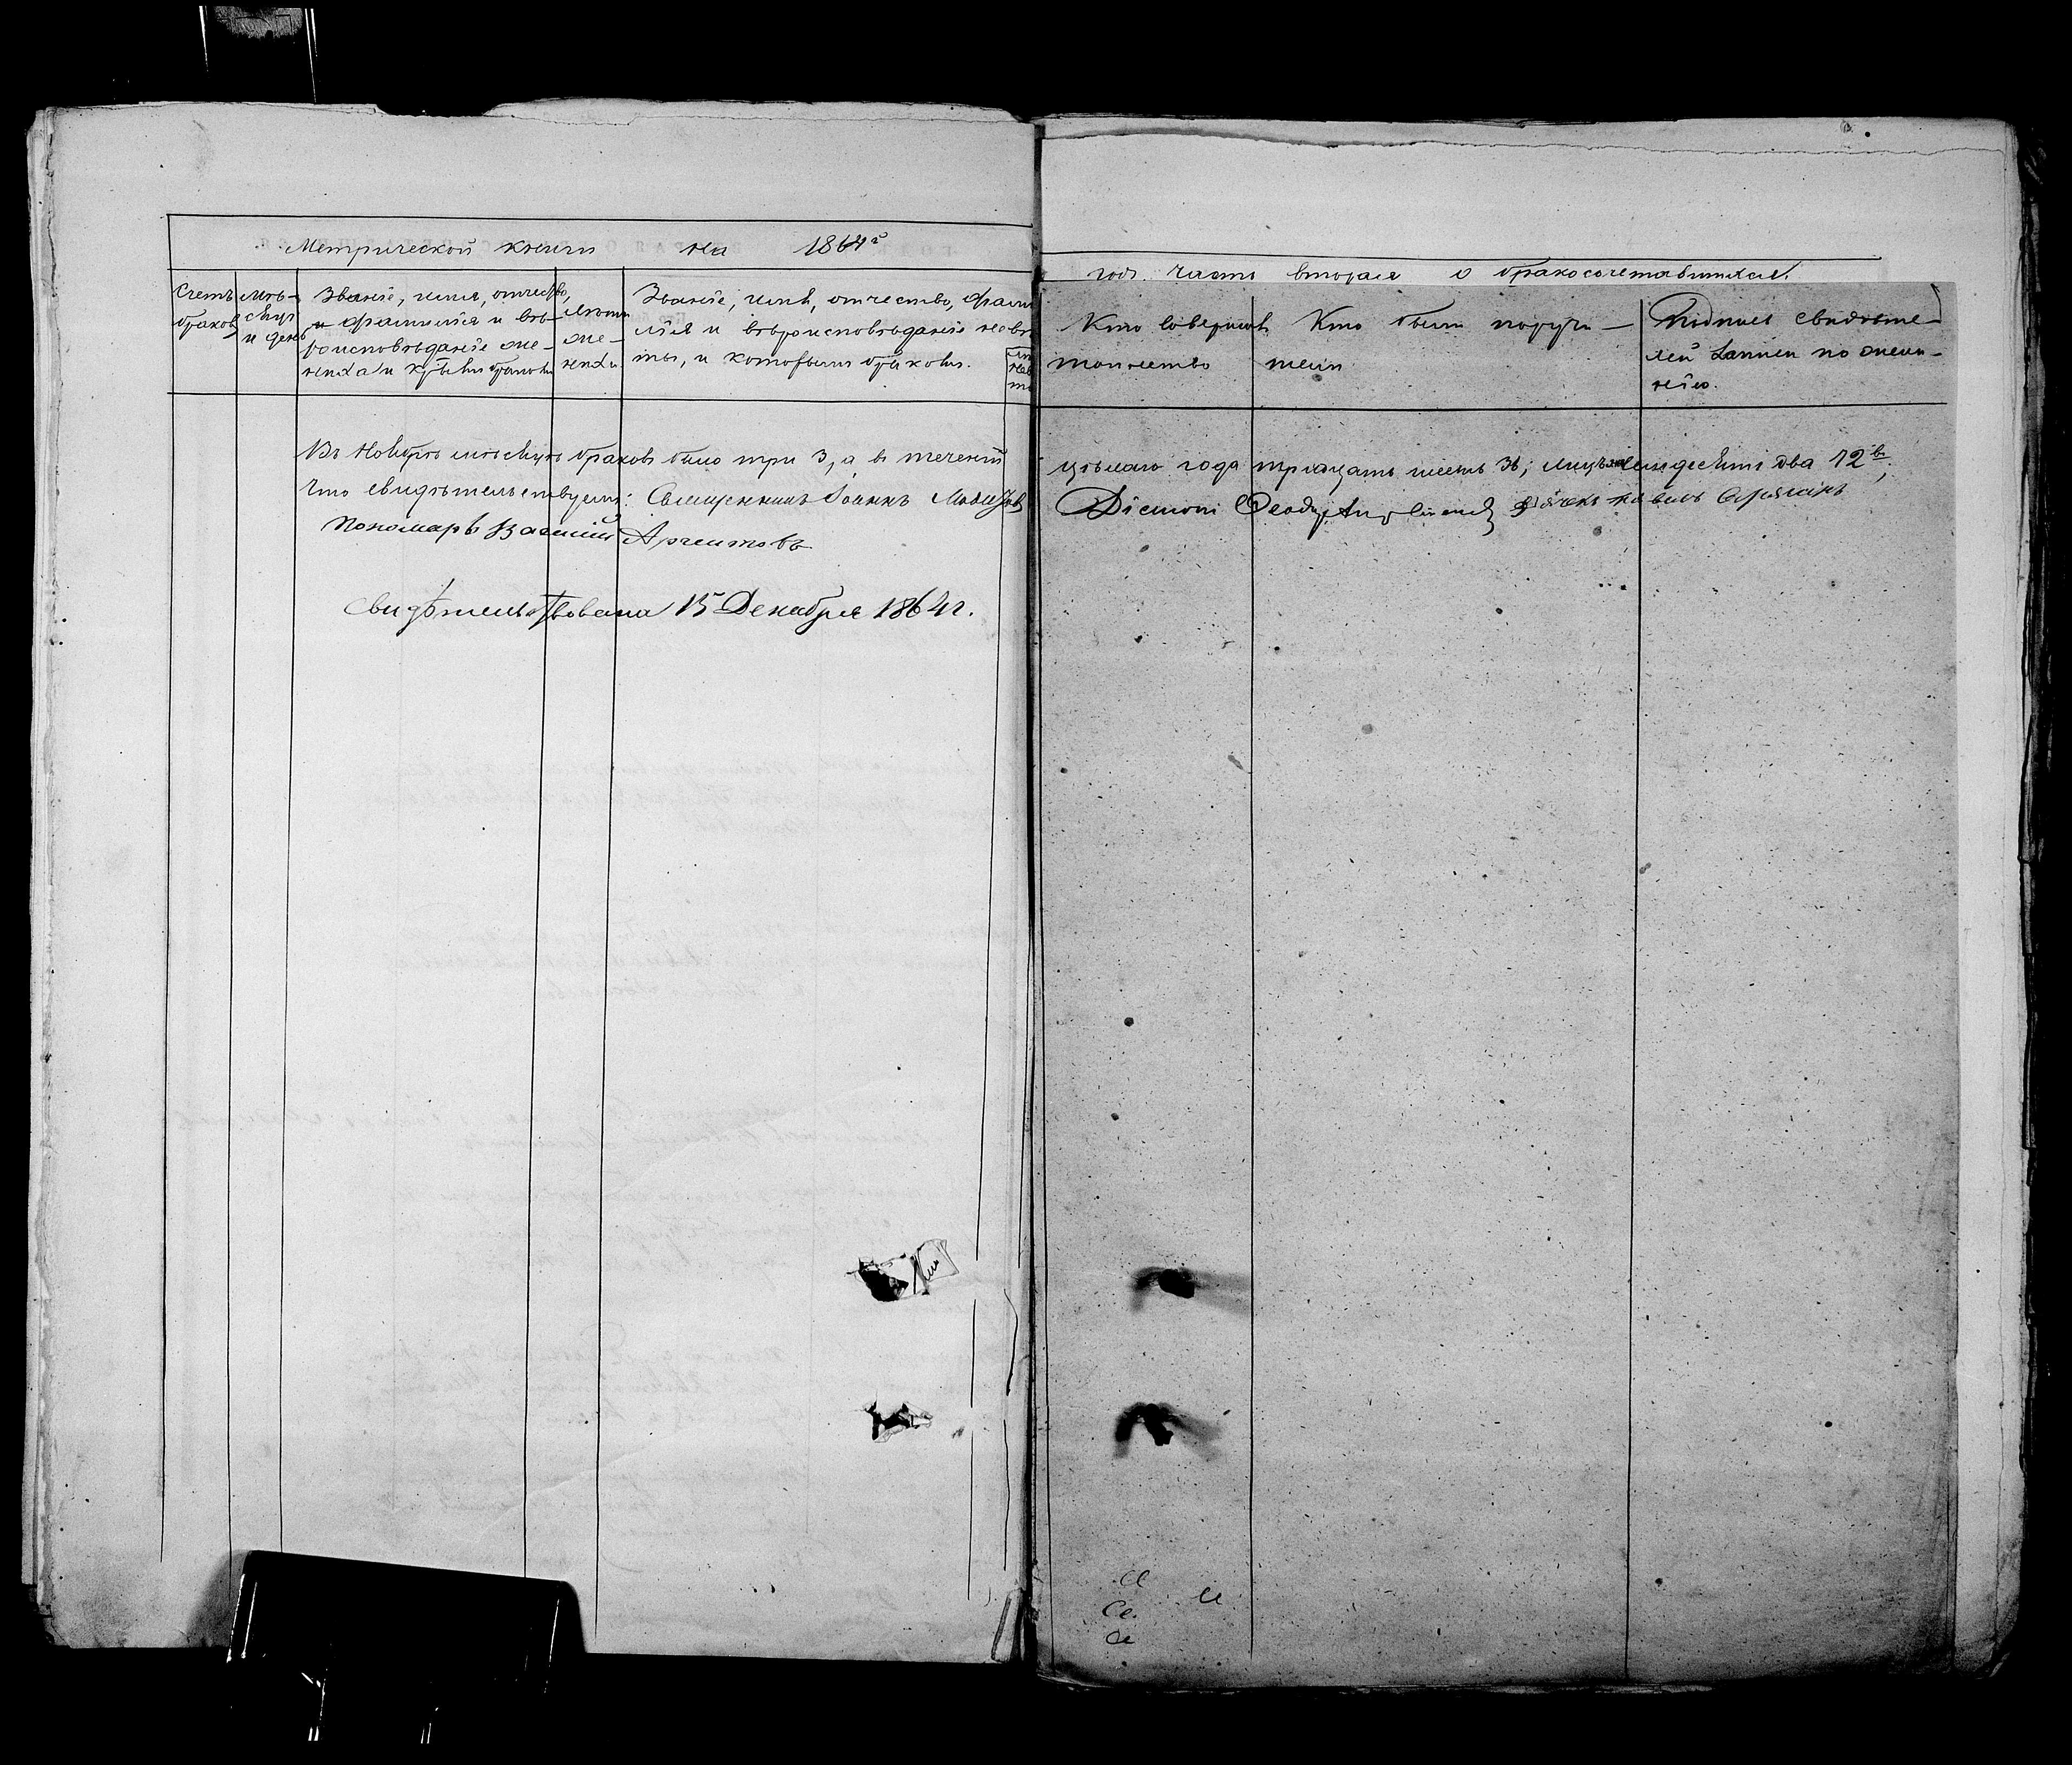 Метрической книги на 1864й
годъ часть вторая о бракосочетавшихся.
Счетъ
браковъ
мѣ-
сяцъ
и день
Званіе, имя, отчество,
и фамилія и вѣ-
роисповѣданіе же-
ниха и кѣмъ бракомъ
Лѣта
же-
ниха
Званіе, имя, отчество, фами
лія и вѣроисповѣданіе невѣ
ты, и которымъ бракомъ.
Кто совершалъ
таинство
Кто были поручи-
тели
Подпись свидѣте-
лей записи по жела-
нію.
Въ Ноябрѣ мѣсяцѣ браковъ было три 3, а въ теченіи цѣлаго года тридцать шесть 36; лицъ семьдесятъ два 72
Что свидѣтельствуемъ: Священникъ Іоаннъ Діаконъ Павелъ
Пономарь Василій
Свидѣтельствована 15 Декабря 1864 г.